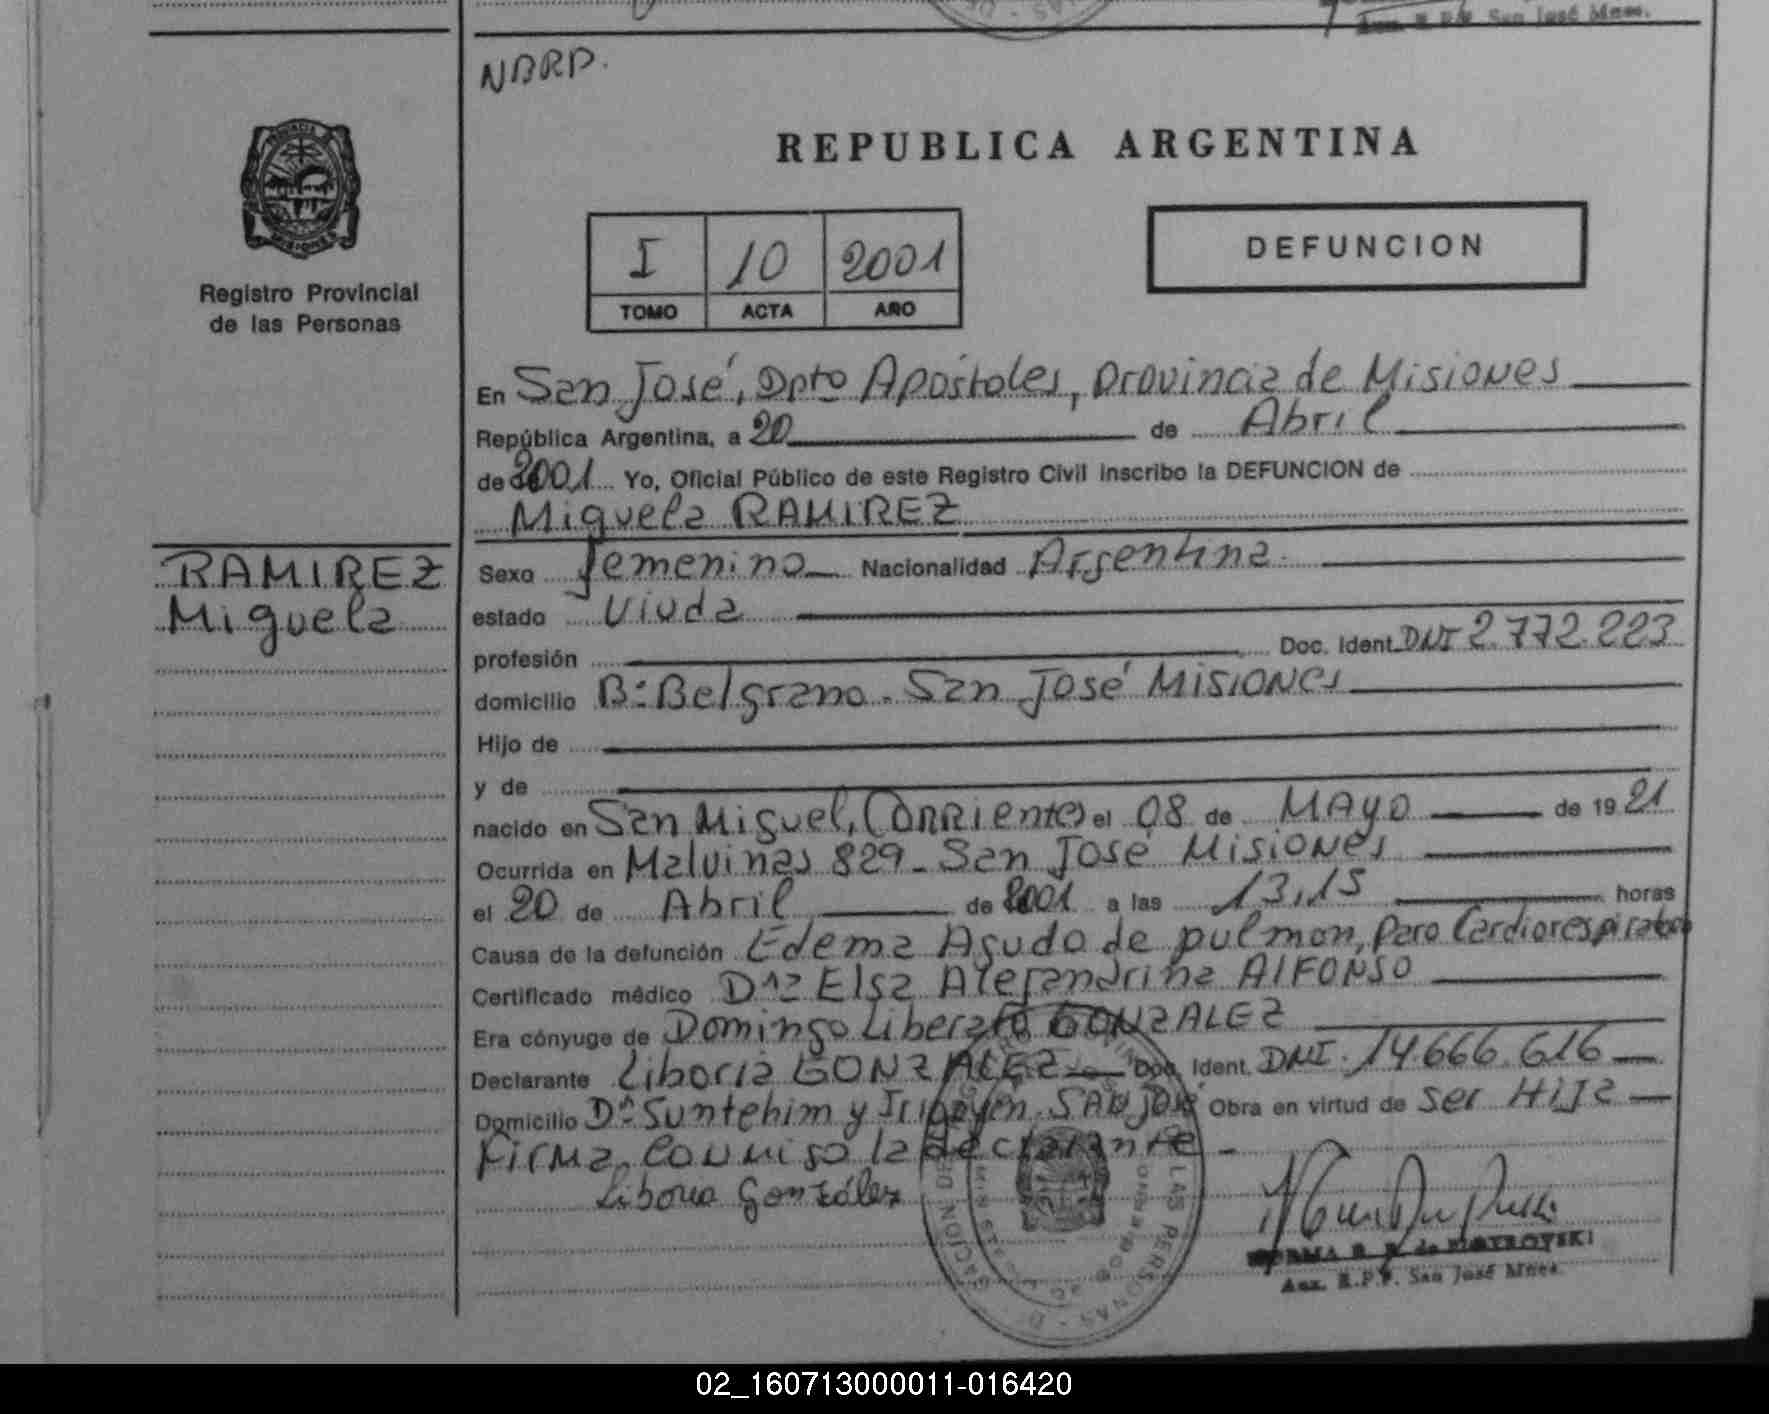 San José Mnes.
NBRP.
REPUBLICA ARGENTINA
Registro Provincial
de las Personas
I 10 2001
TOMO ACTA AÑO
DEFUNCION
En San José, Dpto Apóstoles, provincia de Misiones
República Argentina, a 20 de Abril
de 2001 Yo, Oficial Público de este Registro Civil inscribo la DEFUNCION de
Miguela RAMIREZ
RAMIREZ
Miguela
Sexo femenino Nacionalidad Argentina
estado Viuda
profesión Doc. Ident. DNI 2.772.223
domicilio Bº Belgrano - San José Misiones
Hijo de
y de
nacido en San Miguel, Corrientes el 08 de MAYO de 1921
Ocurrida en Malvinas 829 - San José Misiones
el 20 de Abril de 2001 a las 13,15 horas
Causa de la defunción Edema Agudo de pulmon, paro Cardiorespiratorio
Certificado médico Dra Elsa Alejandrina AlFONSO
Era cónyuge de Domingo Liberato GONZALEZ
Declarante Liboria GONZALEZ Doc. Ident. DNI. 14.666.616
Domicilio y Irigoyen. SAN José Obra en virtud de ser Hija
Firma conmigo la declarante -
Liboria González
NORMA B. R. de PIOTROVSKI
Aux. R.P.P. San José Mnes.
02_160713000011-016420